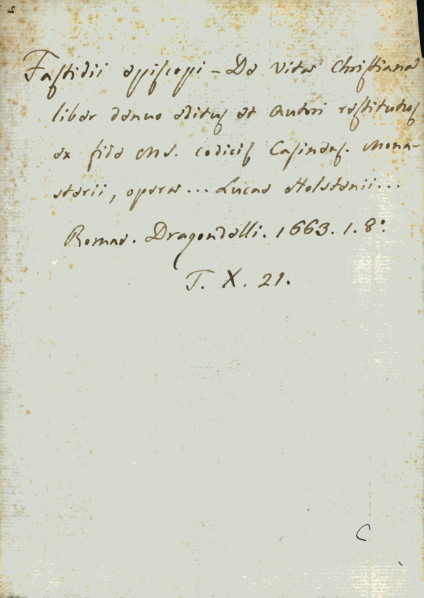 Fastidii episcopi - De Vita Christiana
liber denuo editus et Autori restitutus
ex fide MS. codicis Casinens. Mona-
sterii, opera... Lucae Holstenii...
Romae. Dragondelli. 1663. 1. 8°.
T. X. 21.
C